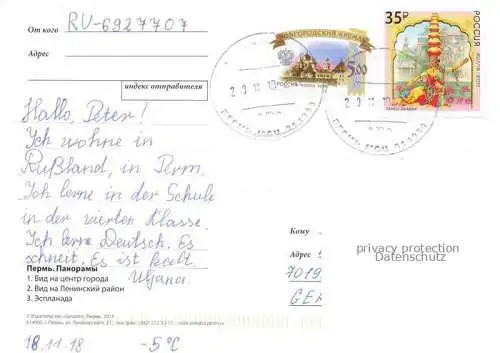 RU-6927707
От кого
Адрес
индекс отправителя
НОВГОРОДСКИЙ КРЕМЛЬ
5.00
РОССИЯ
35₽
РОССИЯ
Hallo, Peter!
Ich wohne in
Rußland, in Perm.
Ich lerne in der Schule
in der vierten Klasse.
Ich lerne Deutsch. Es
schneit. Es ist kalt.
Uljana.
Пермь. Панорамы
1. Вид на центр города
2. Вид на Ленинский район
3. Эспланада
Кому
Адрес
7019
GER
privacy protection
Datenschutz
18.11.18 -5°C